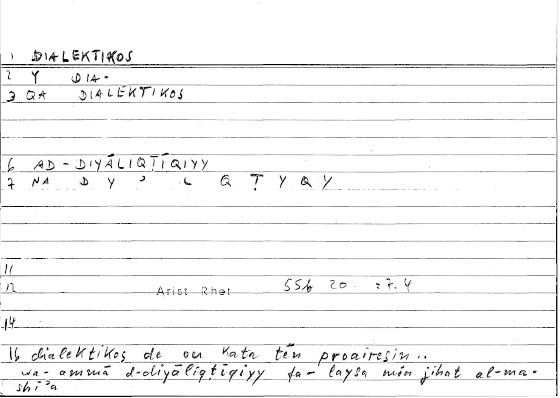 1 DIALEKTIKOS
2 Y DIA-
3 QA DIALEKTIKOS
6 AD-DIYĀLIQṬĪQIYY
7 NA D Y ʾ L Q Ṭ Y Q Y
11
12 Arist Rhet 55b 20 :7.4
14
16 dialektikos de ou kata tēn proairesin..
wa-ammā d-diyāliqṭīqiyy fa-laysa min jihat al-ma-
shīʾa